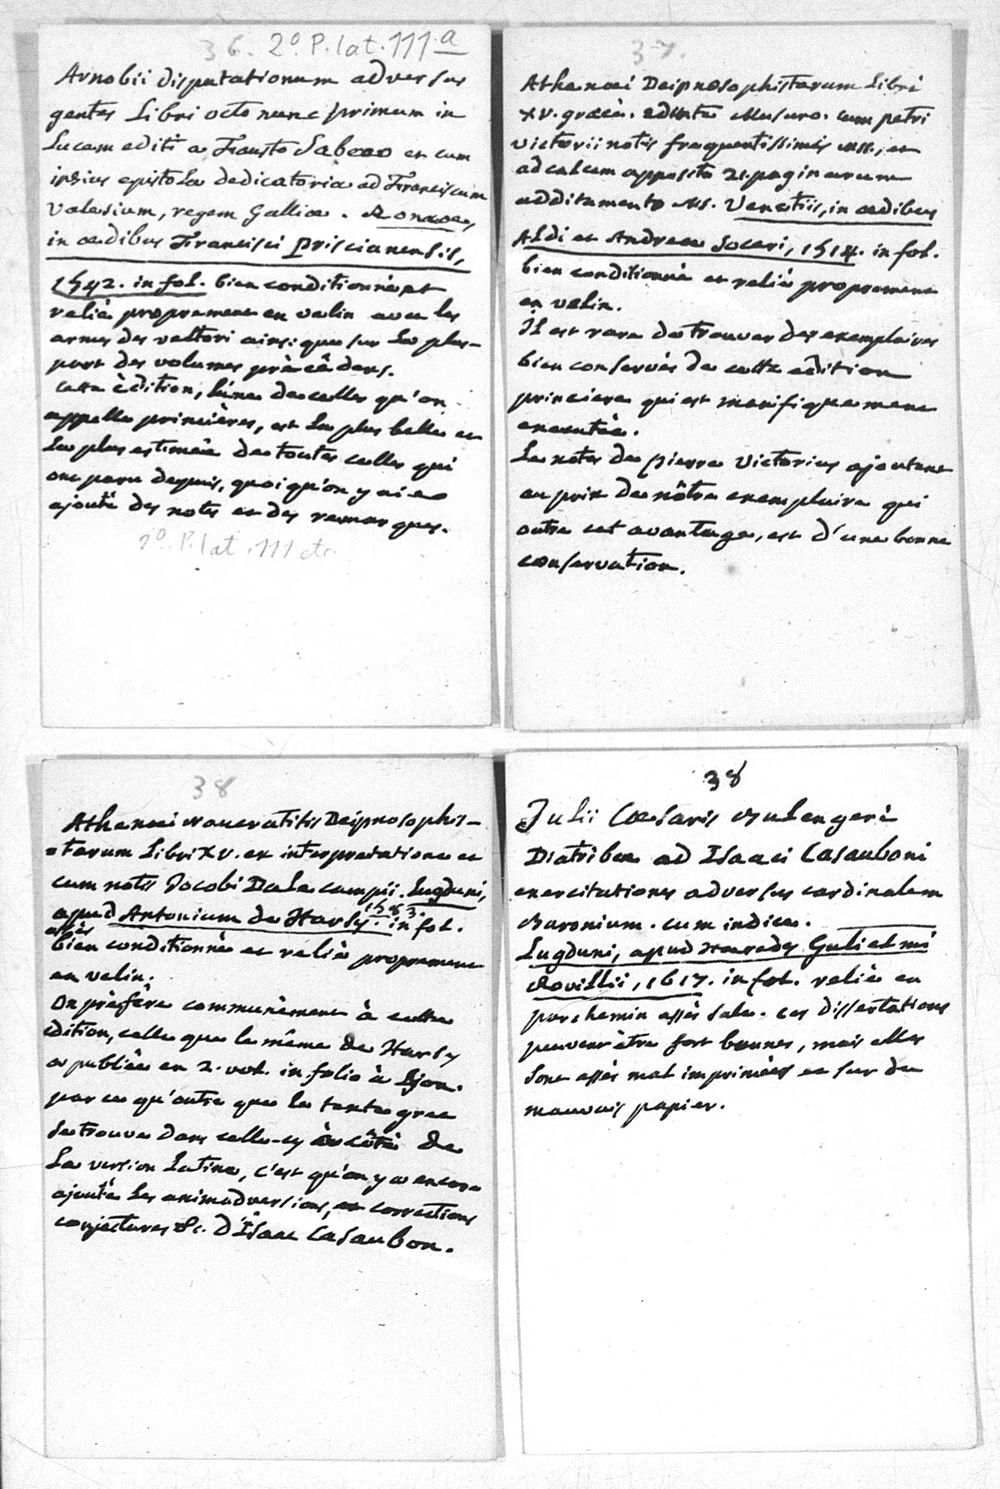 36. 2º P.lat.111.a
Arnobii disputationum adversus
gentes Libri octo nunc primum in
Lucem editi a Fausto Sabaeo et cum
ipsius epistola dedicatoria ad Franciscum
Valesium, regem Galliae. Romae,
in aedibus Francisci Priscianensis,
1542. in fol. bien conditionné et
relié proprement en velin avec les
armes des vettori ainsi que sur la plus-
part des volumes précédens.
Cette édition, l'une de celles qu'on
appelle princières, est la plus belle et
la plus estimée de toutes celles qui
ont paru depuis, quoiqu'on y aie
ajouté des notes et des remarques.
2º P.lat.111 etc
37.
Athenaei Deipnosophistarum Libri
XV. graecè. edente Musuro. cum petri
victorii notis frequentissimis MSS., et
ad calcem apposito 21. paginarum
additamento MS. Venetiis, in aedibus
Aldi et Andreae Soceri, 1514. in fol.
bien conditionné et relié proprement
en velin.
Il est rare de trouver des exemplaires
bien conservés de cette édition
princiere qui est manifiquement
executée.
Les notes de pierre Victorius ajoutent
au prix de nôtre exemplaire qui
outre cet avantage, est d'une bonne
conservation.
38
Athenaei Naucratitis Deipnosophis-
=tarum Libri XV. ex interpretatione et
cum notis Jacobi Dalecampii. Lugduni,
apud Antonium de Harsy. 1583. in fol.
assès
bien conditionné et relié proprement
en velin.
On préfère communément à cette
édition, celle que le même de Harsy
a publiée en 2. vol. in folio à Lyon.
par ce qu'outre que le texte grec
se trouve dans celle-cy à côté de
la version Latine, c'est qu'on y a encore
ajouté les animadversions, et corrections
conjectures &c. d'Isaac Casaubon.
38
Julii Caesaris Bulengeri
Diatribae ad Isaaci Casauboni
exercitationes adversus cardinalem
Baronium. cum indice.
Lugduni, apud haeredes Gulielmi
Rovillii, 1617. in fol. relié en
parchemin assès sale. ces dissertations
peuvent être fort bonnes, mais elles
sont assès mal imprimées et sur du
mauvais papier.